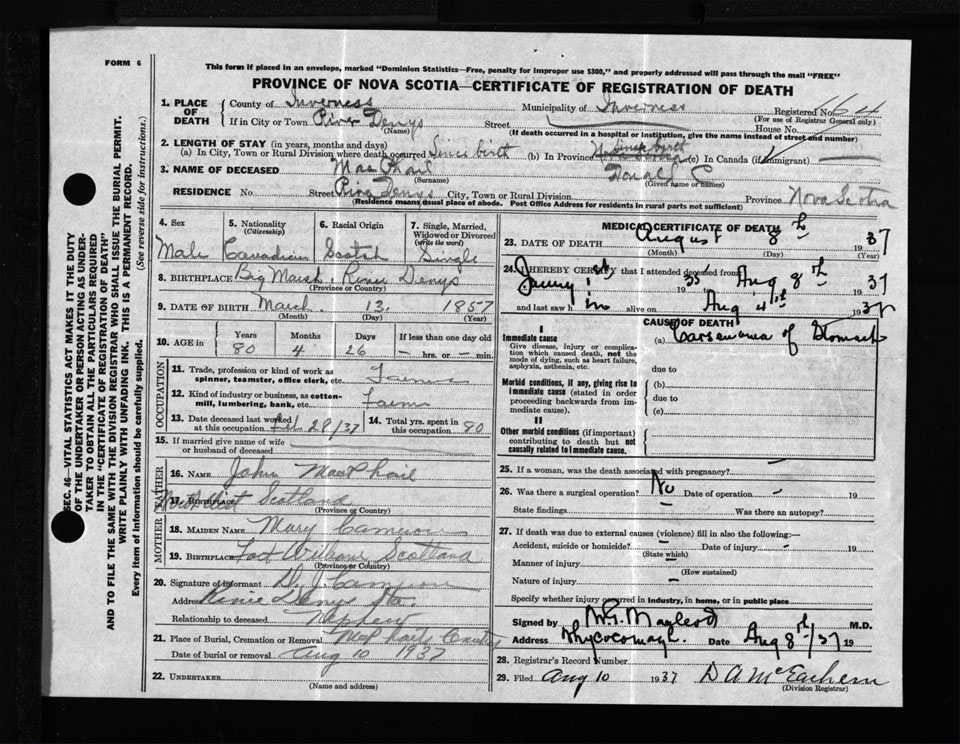 FORM 6
This form if placed in an envelope, marked "Dominion Statistics—Free, penalty for improper use $300," and properly addressed will pass through the mail "FREE"
PROVINCE OF NOVA SCOTIA—CERTIFICATE OF REGISTRATION OF DEATH
SEC. 46—VITAL STATISTICS ACT MAKES IT THE DUTY
OF THE UNDERTAKER OR PERSON ACTING AS UNDER-
TAKER TO OBTAIN ALL THE PARTICULARS REQUIRED
IN THE "CERTIFICATE OF REGISTRATION OF DEATH"
AND TO FILE THE SAME WITH THE DIVISION REGISTRAR WHO SHALL ISSUE THE BURIAL PERMIT.
WRITE PLAINLY WITH UNFADING INK. THIS IS A PERMANENT RECORD.
Every item of information should be carefully supplied. (See reverse side for instructions.)
1. PLACE OF DEATH
County of Inverness Municipality of Inverness Registered No. 64
(For use of Registrar General only)
If in City or Town River Denys Street House No.
(Name) (If death occurred in a hospital or institution, give the name instead of street and number)
2. LENGTH OF STAY (in years, months and days)
(a) In City, Town or Rural Division where death occurred Since birth (b) In Province Since birth (c) In Canada (if immigrant) —
3. NAME OF DECEASED MacPhail Donald C
(Surname) (Given name or names)
RESIDENCE No Street River Denys City, Town or Rural Division Province Nova Scotia
(Residence means usual place of abode. Post Office Address for residents in rural parts not sufficient)
4. Sex 5. Nationality (Citizenship) 6. Racial Origin 7. Single, Married, Widowed or Divorced (write the word)
Male Canadian Scotch Single
8. BIRTHPLACE Big Marsh, River Denys
(Province or Country)
9. DATE OF BIRTH March 13 1857
(Month) (Day) (Year)
10. AGE in Years Months Days If less than one day old
80 4 26 — hrs. or — min.
OCCUPATION
11. Trade, profession or kind of work as
spinner, teamster, office clerk, etc. Farmer
12. Kind of industry or business, as cotton-
mill, lumbering, bank, etc. Farm
13. Date deceased last worked
at this occupation Feb 28/37
14. Total yrs. spent in
this occupation 80
15. If married give name of wife
or husband of deceased
FATHER
16. NAME John MacPhail
17. BIRTHPLACE North Uist Scotland
(Province or Country)
MOTHER
18. MAIDEN NAME Mary Cameron
19. BIRTHPLACE Fort William Scotland
(Province or Country)
20. Signature of informant D. J. Cameron
Address River Denys Sta.
Relationship to deceased Nephew
21. Place of Burial, Cremation or Removal MacPhail
Date of burial or removal Aug 10 1937
22. UNDERTAKER
(Name and address)
MEDICAL CERTIFICATE OF DEATH
23. DATE OF DEATH August 8th 1937
(Month) (Day) (Year)
24. I HEREBY CERTIFY that I attended deceased from
1935 Aug 8th 1937
and last saw him alive on Aug 4th 1937
CAUSE OF DEATH
I
Immediate cause
Give disease, injury or complica-
tion which caused death, not the
mode of dying, such as heart failure,
asphyxia, asthenia, etc.
(a) Carsenoma of Stomach
due to
Morbid conditions, if any, giving rise to
immediate cause (stated in order
proceeding backwards from im-
mediate cause).
(b)
due to
(c)
II
Other morbid conditions (if important)
contributing to death but not
causally related to immediate cause.
25. If a woman, was the death associated with pregnancy? —
26. Was there a surgical operation? No Date of operation — 19
State findings Was there an autopsy?
27. If death was due to external causes (violence) fill in also the following:—
Accident, suicide or homicide? — Date of injury — 19
(State which)
Manner of injury —
(How sustained)
Nature of injury —
Specify whether injury occurred in industry, in home, or in public place
Signed by M.D.
Address Whycocomagh Date Aug 8th/37 19
28. Registrar's Record Number
29. Filed Aug 10 1937 D A McEachern
(Division Registrar)